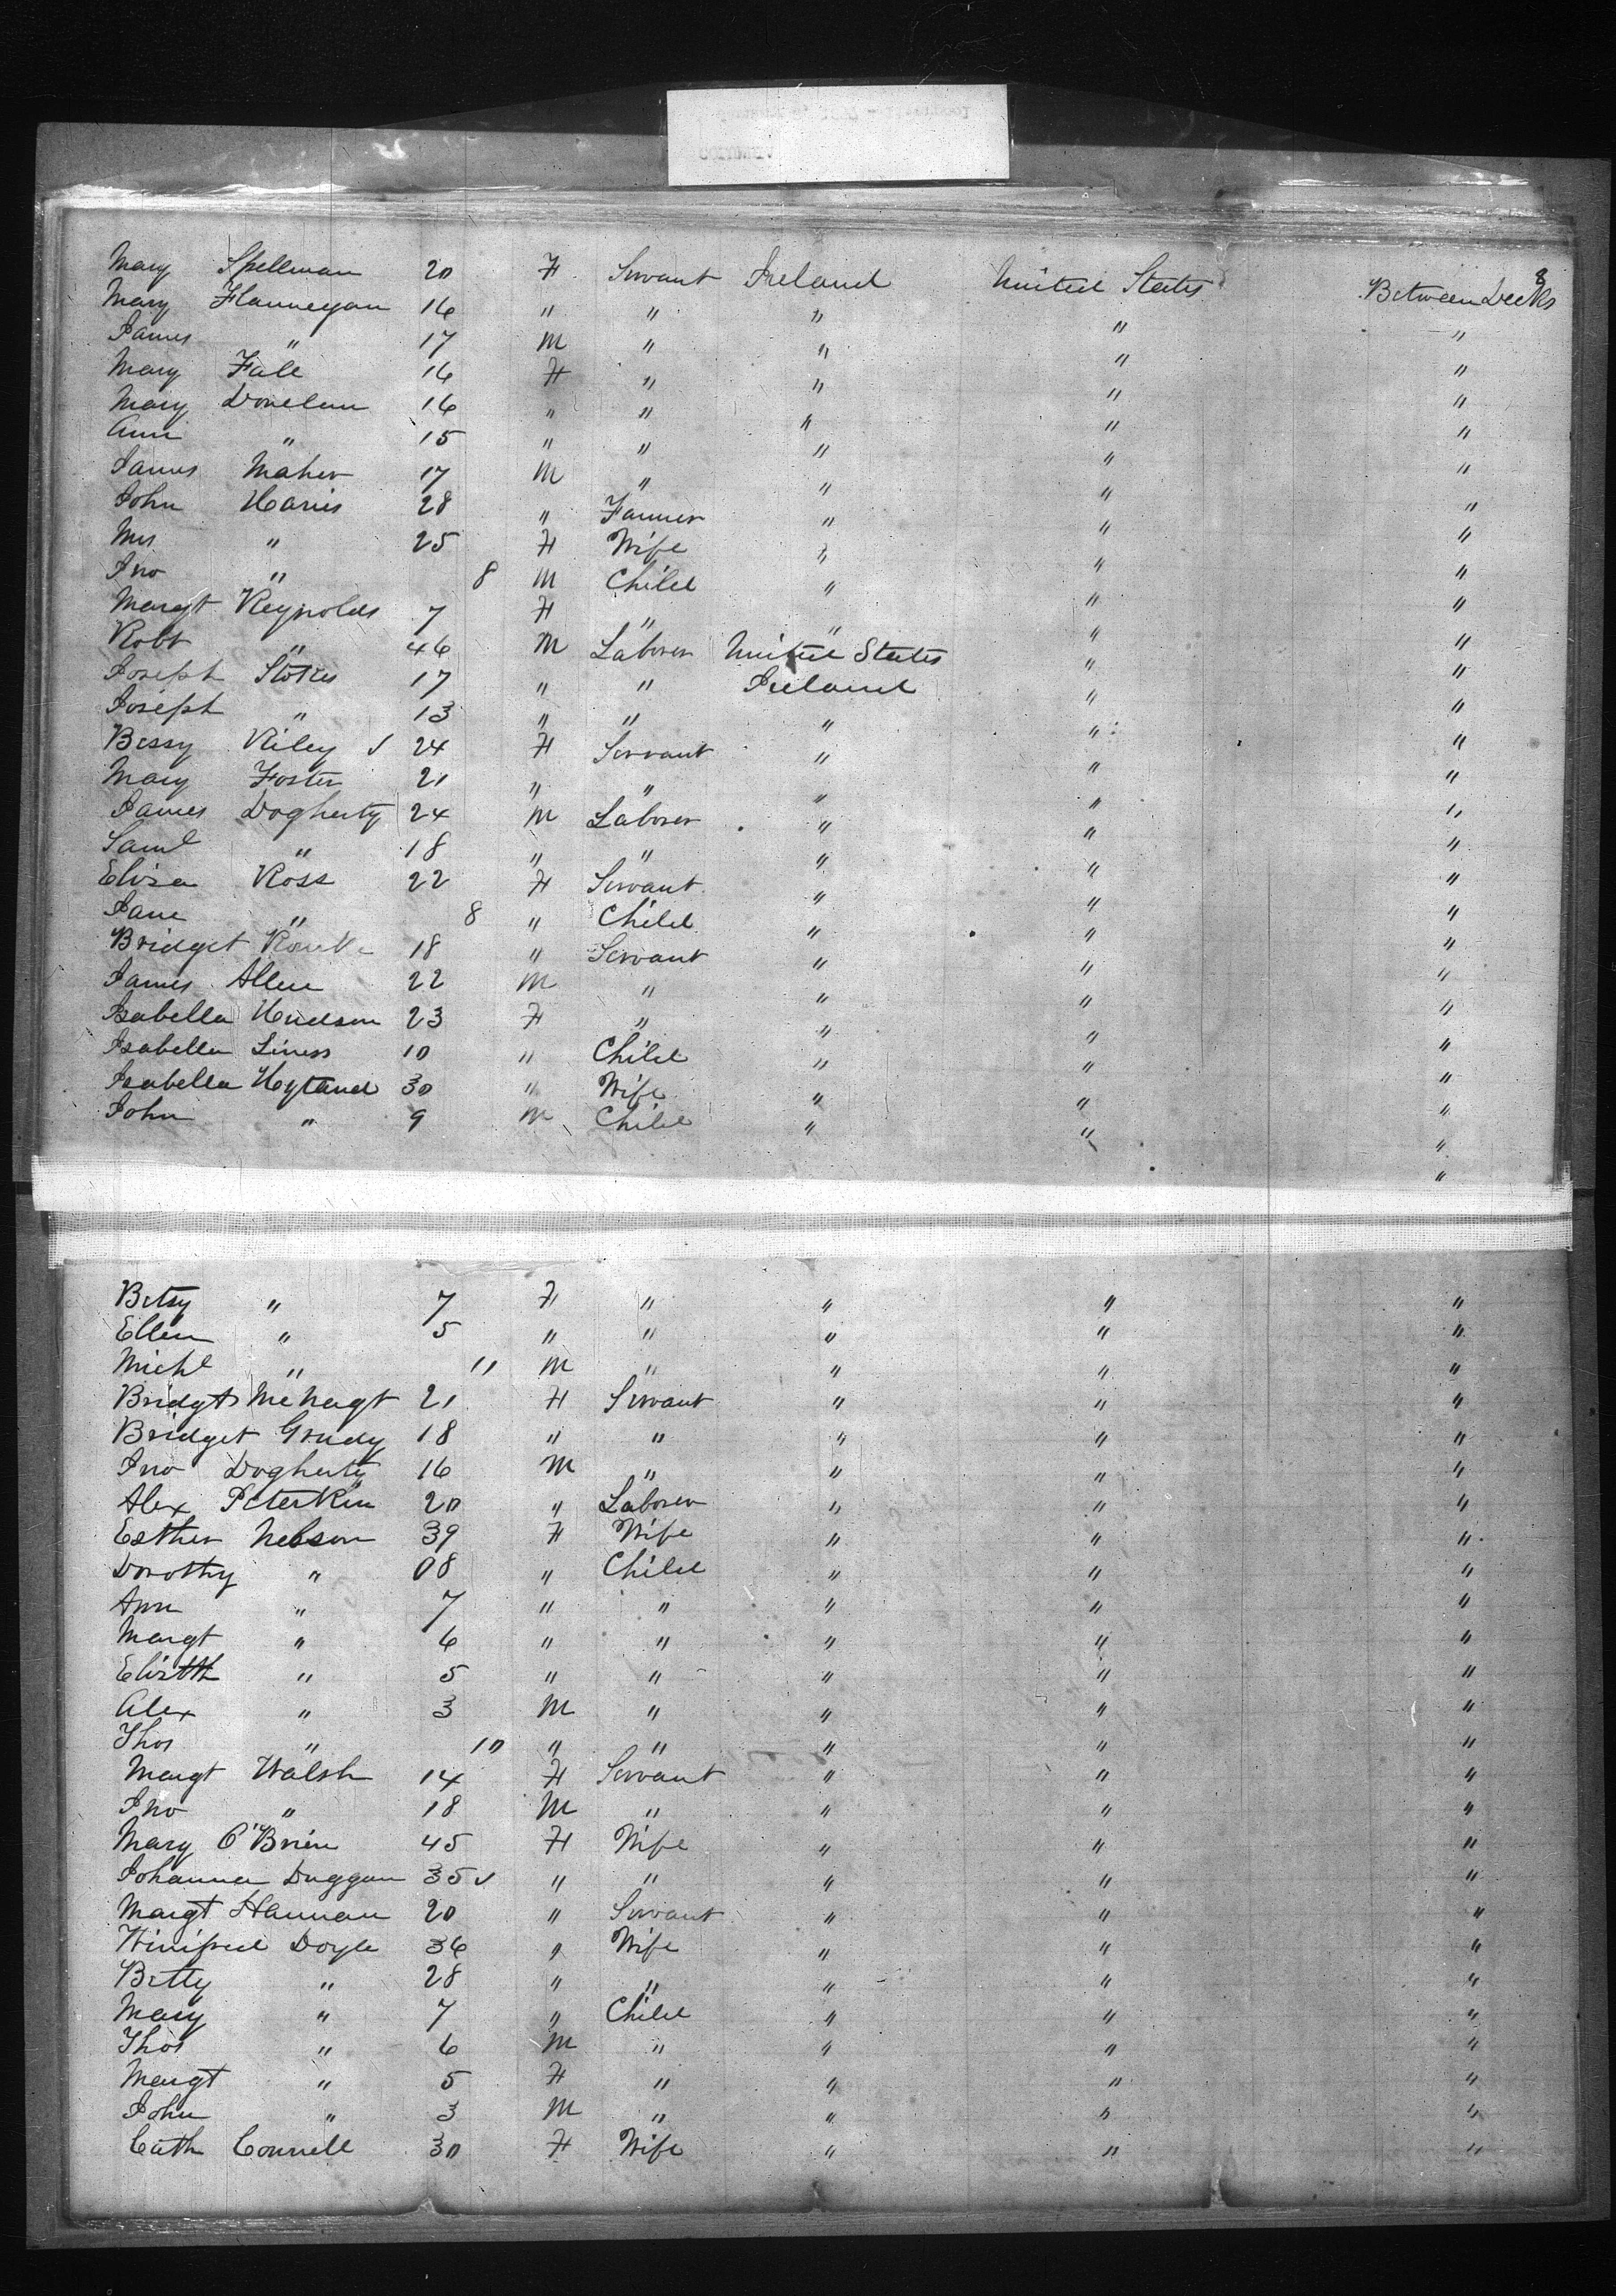 8
Mary Spellman 20 F Servant Ireland United States Between Decks
Mary Flannegan 16 " " " " "
James " 17 M " " " "
Mary Fale 16 F " " " "
Mary Donelan 16 " " " " "
Ann " 15 " " " " "
James Maher 17 M " " " "
John Harris 28 " Farmer " " "
Mrs " 25 F Wife " " "
Jno " 8 M Child " " "
Margt Reynolds 7 F " " " "
Robt " 46 M Laborer United States " "
Joseph Stokes 17 " " Ireland " "
Joseph " 13 " " " " "
Bessy Riley √ 24 F Servant " " "
Mary Foster 21 " " " " "
James Dogherty 24 M Laborer " " "
Saml " 18 " " " " "
Eliza Ross 22 F Servant " " "
Jane " 8 " Child " " "
Bridget 18 " Servant " " "
James Allen 22 M " " " "
Isabella Hudson 23 F " " " "
Isabella Liness 10 " Child " " "
Isabella Hyland 30 " Wife " " "
John " 9 M Child " " "
"
Betsy " 7 F " " " "
Ellen " 5 " " " " "
Michl " 11 M " " " "
Bridgt 21 F Servant " " "
Bridget Grudy 18 " " " " "
Jno Dogherty 16 M " " " "
Alex Peterkin 20 " Laborer " " "
Esther Nelson 39 F Wife " " "
Dorothy " 08 " Child " " "
Ann " 7 " " " " "
Margt " 6 " " " " "
Elizth " 5 " " " " "
Alex " 3 M " " " "
Thos " 10 " " " " "
Margt Walsh 14 F Servant " " "
Jno " 18 M " " " "
Mary O'Brien 45 F Wife " " "
Johanna Duggan 35 √ " " " " "
Margt Hannan 20 " Servant " " "
Winifred Doyle 36 " Wife " " "
Betty " 28 " " " " "
Mary " 7 " Child " " "
Thos " 6 M " " " "
Margt " 5 F " " " "
John " 3 M " " " "
Cath Connell 30 F Wife " " "